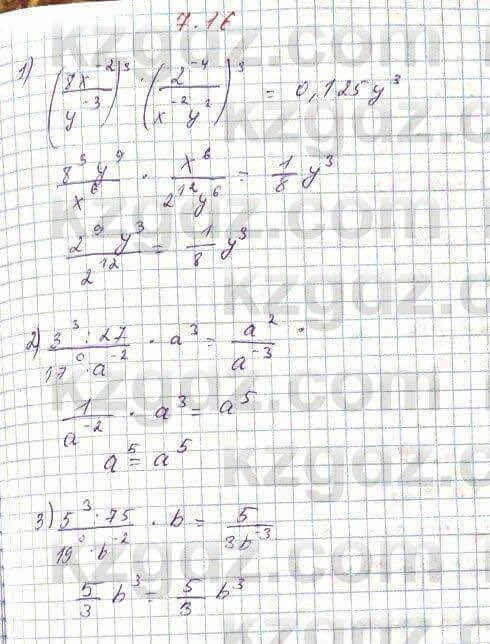 7.16
1) (8x⁻²/y⁻³)³ · (2⁻⁴/x⁻²y²)³ = 0,125y³
8³y⁹/x⁶ · x⁶/2¹²y⁶ = 1/8 y³
2⁹y³/2¹² = 1/8 y³
2) 3³:27/17⁰·a⁻² · a³ = a²/a⁻³
1/a⁻² · a³ = a⁵
a⁵ = a⁵
3) 5³:75/19⁰·b⁻² · b = 5/3b⁻³
5/3 b³ = 5/3 b³
kzgdz.com